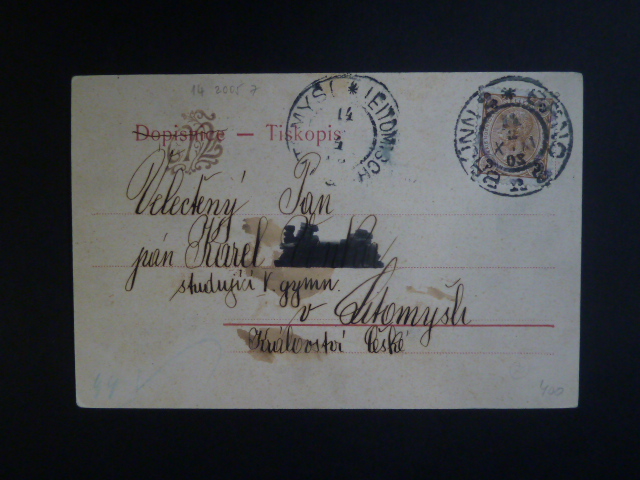 14 2005 7
Dopisnice — Tiskopis
LEITOMISCHL
14
BRÜNN 2 * BRNO 2
03
Velectěný Pan
pán Karel
studující V. gymn.
v Litomyšli
Království České
44
400